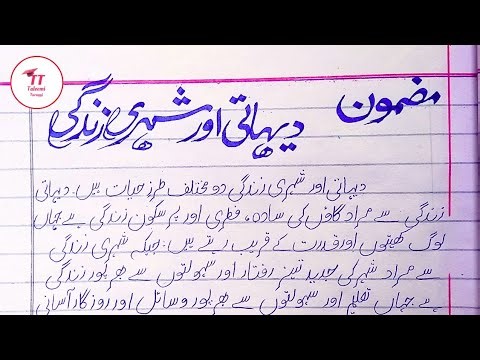 TT
Taleemi
Taraqqi
مضمون
دیہاتی اور شہری زندگی
دیہاتی اور شہری زندگی دو مختلف طرز حیات ہیں۔ دیہاتی
زندگی سے مراد گاؤں کی سادہ، فطری اور پر سکون زندگی ہے جہاں
لوگ کھیتوں اور قدرت کے قریب رہتے ہیں۔ جبکہ شہری زندگی
سے مراد شہر کی جدید تیز رفتار اور سہولتوں سے بھرپور زندگی
ہے جہاں تعلیم اور سہولتوں سے بھرپور وسائل اور روزگار آسانی